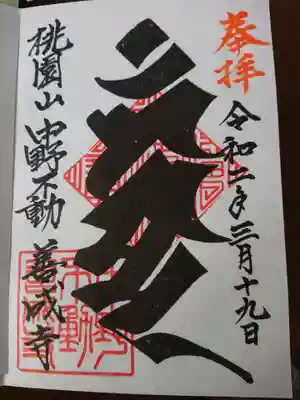 奉拝
令和二年三月十九日
桃園山 中野不動 善成寺